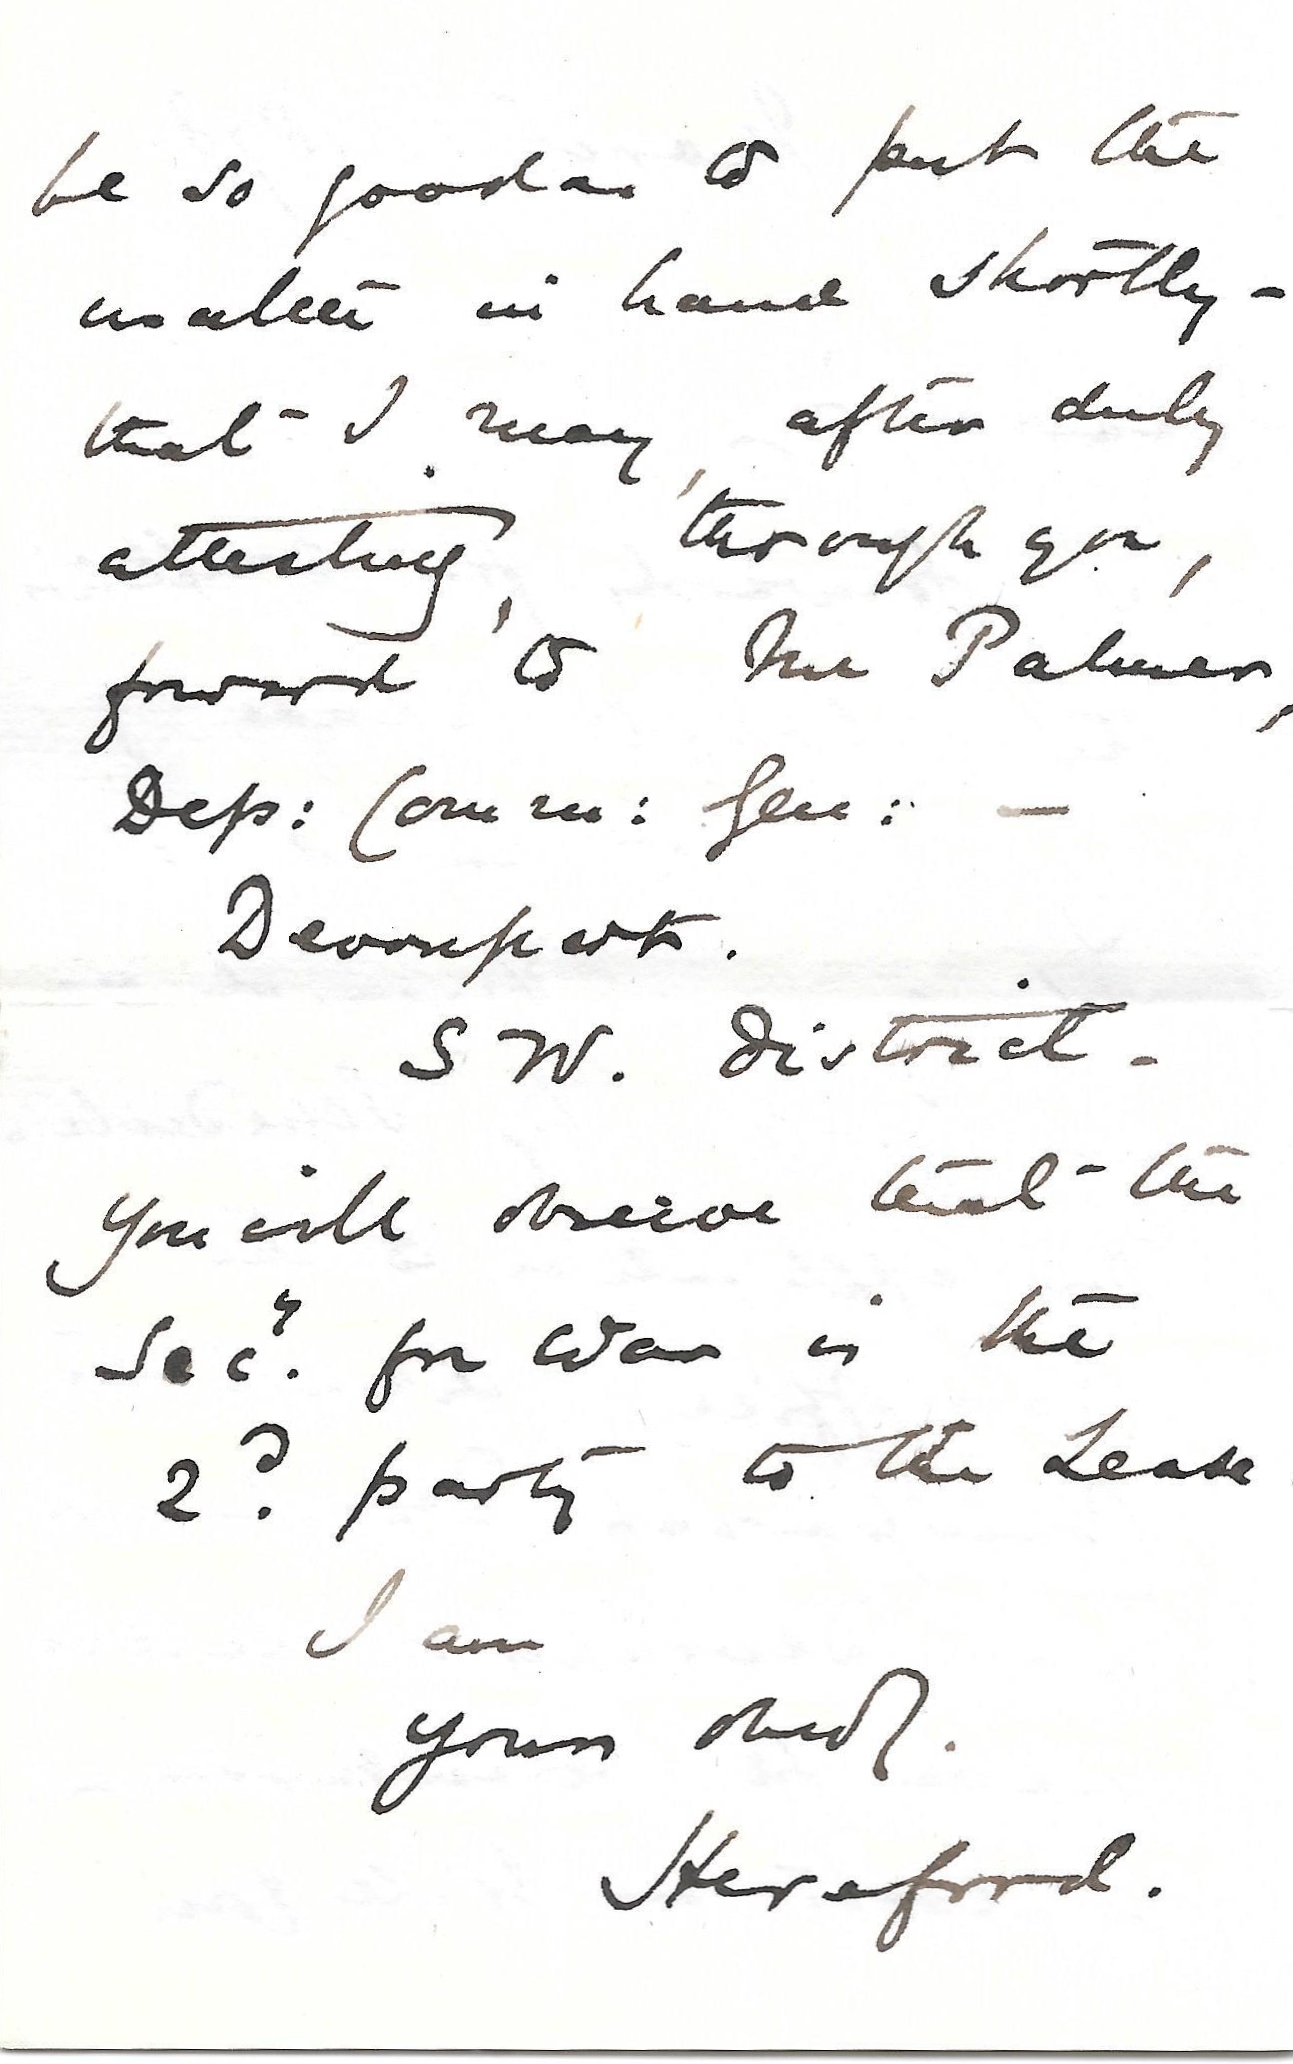 be so good as to put the
matter in hand shortly -
that I may, after duly
attesting, through you,
forward to Mr Palmer,
Dep: Comm: Gen: —
Devonport.
S W. District -
You will observe that the
Secy. for War is the
2d. party to the Lease.
I am
yours obedt.
Hereford.